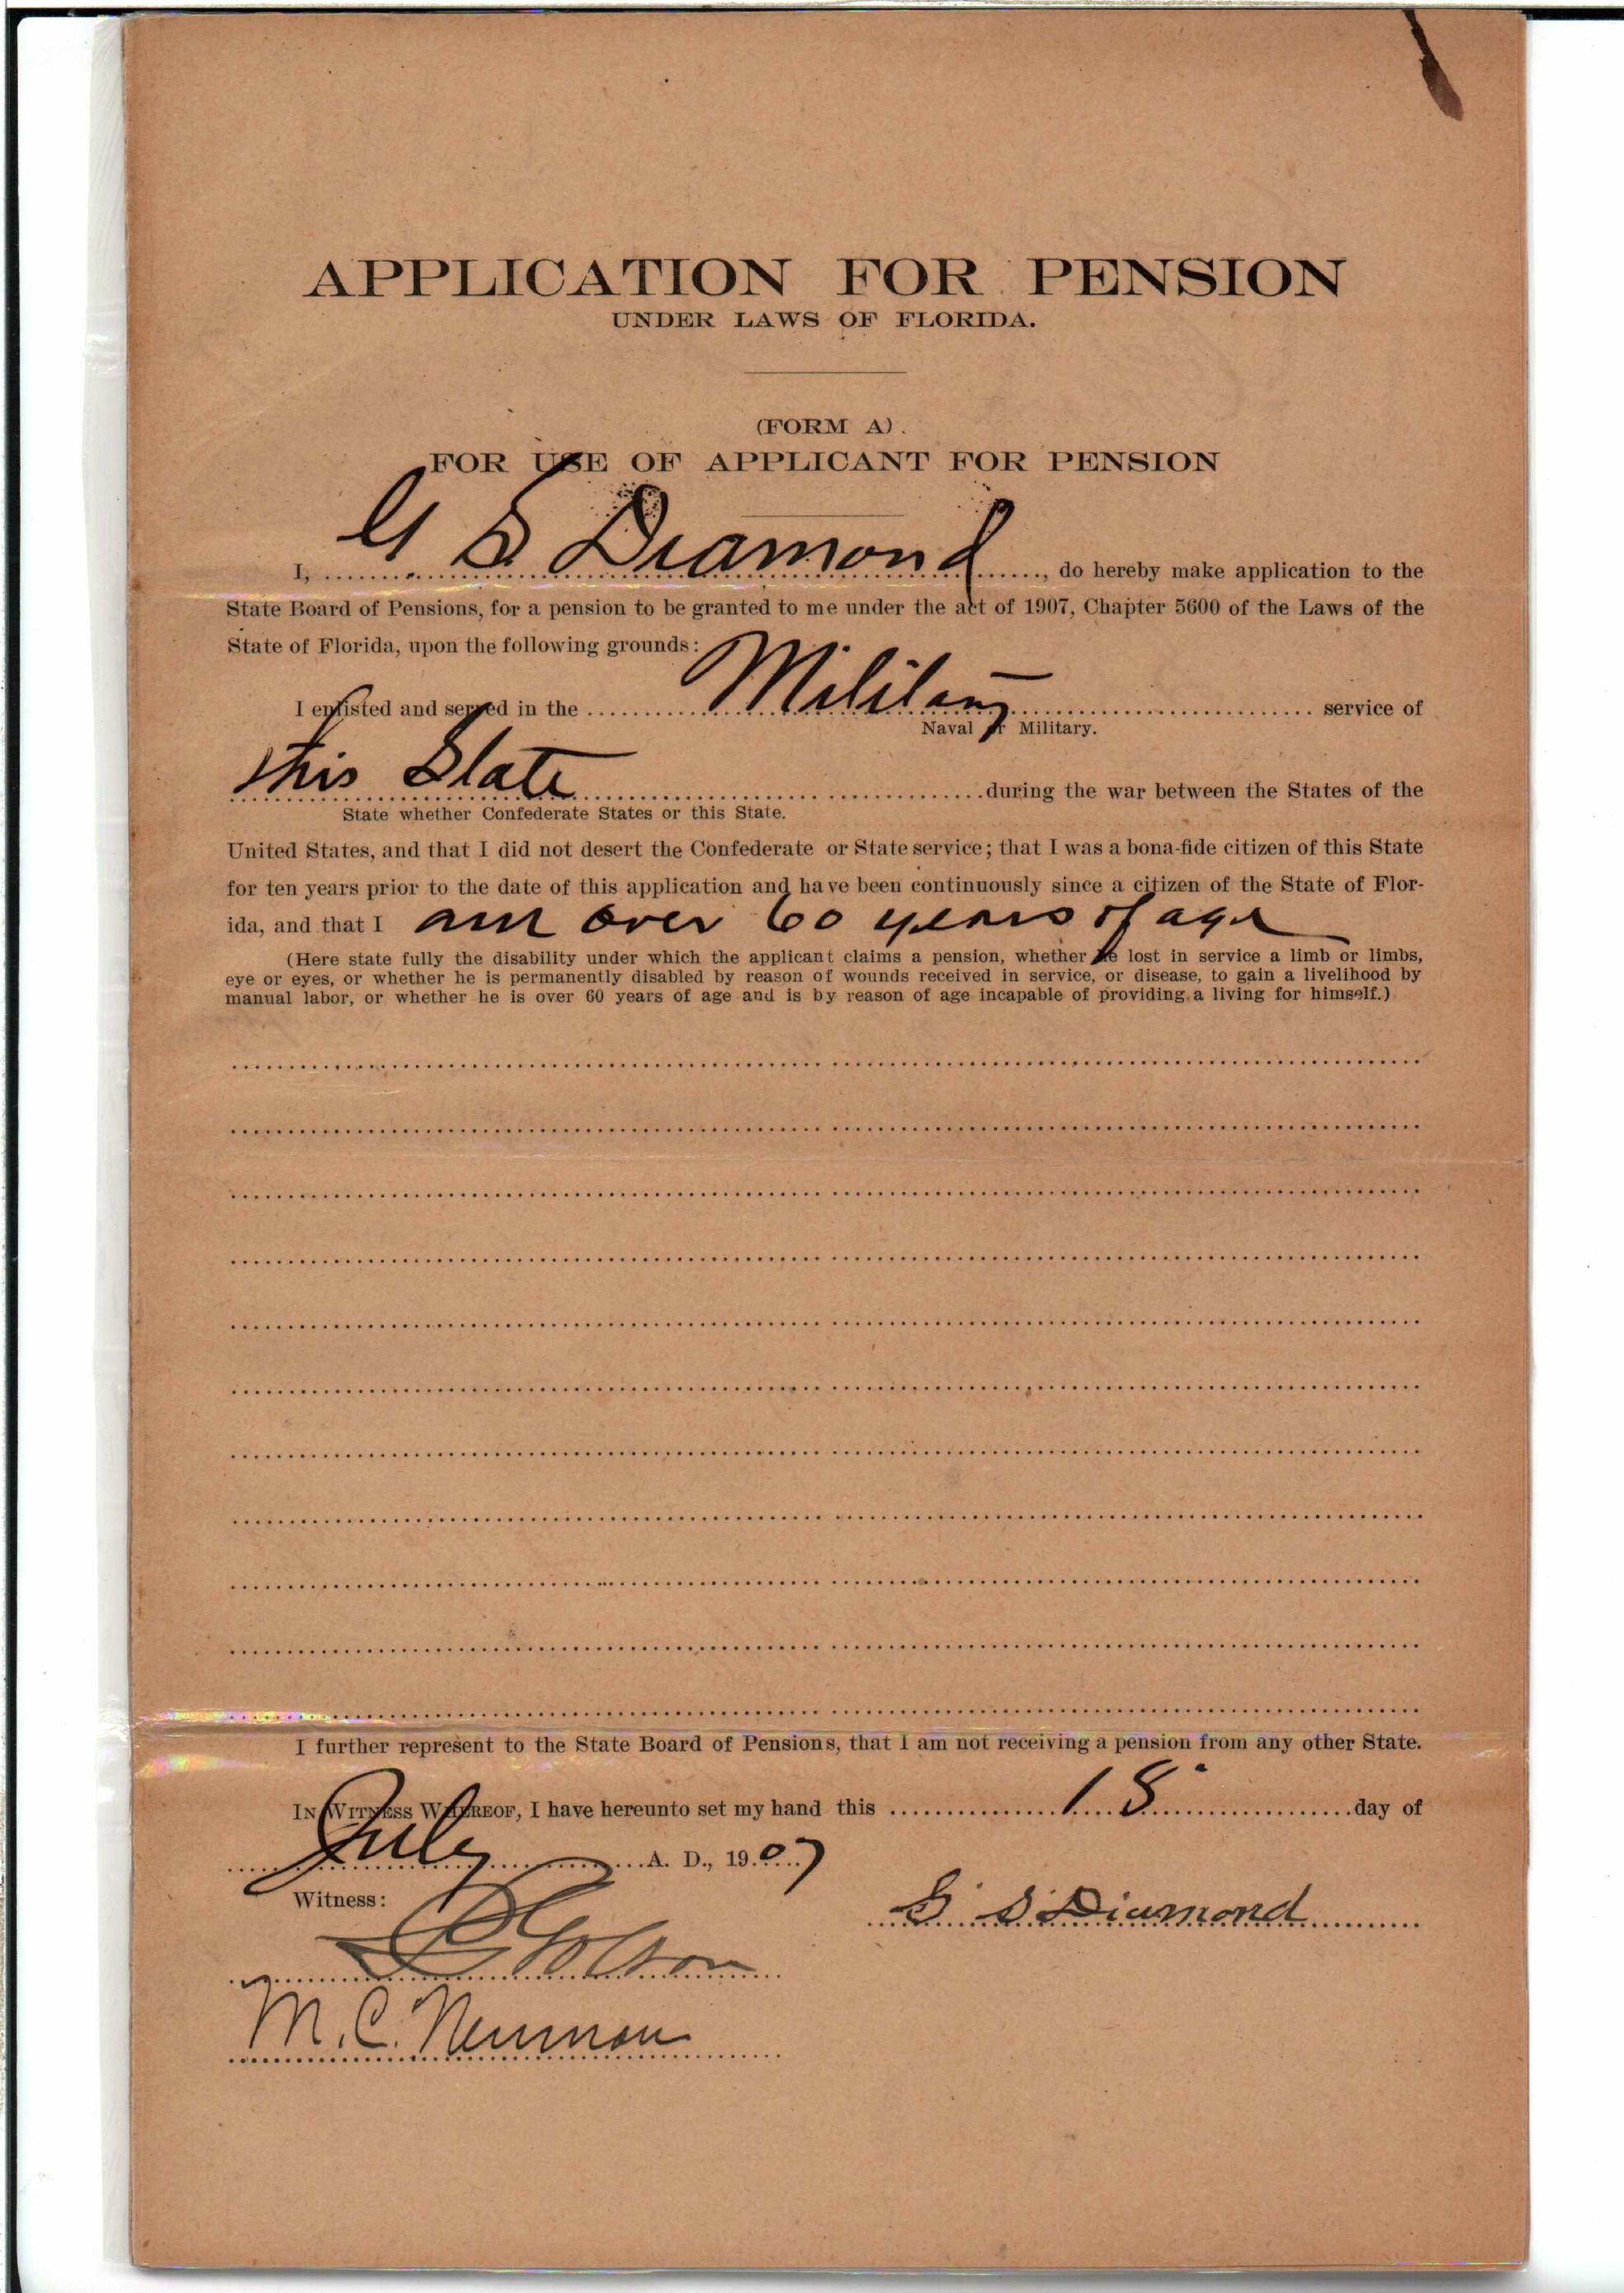 APPLICATION FOR PENSION
UNDER LAWS OF FLORIDA.
(FORM A).
FOR USE OF APPLICANT FOR PENSION
I, G S Diamond, do hereby make application to the
State Board of Pensions, for a pension to be granted to me under the act of 1907, Chapter 5600 of the Laws of the
State of Florida, upon the following grounds:
I enlisted and served in the Military service of
Naval or Military.
this State during the war between the States of the
State whether Confederate States or this State.
United States, and that I did not desert the Confederate or State service; that I was a bona-fide citizen of this State
for ten years prior to the date of this application and have been continuously since a citizen of the State of Flor-
ida, and that I am over 60 years of age
(Here state fully the disability under which the applicant claims a pension, whether he lost in service a limb or limbs,
eye or eyes, or whether he is permanently disabled by reason of wounds received in service, or disease, to gain a livelihood by
manual labor, or whether he is over 60 years of age and is by reason of age incapable of providing a living for himself.)
I further represent to the State Board of Pensions, that I am not receiving a pension from any other State.
IN WITNESS WHEREOF, I have hereunto set my hand this 18 day of
July A. D., 1907
Witness:
G S Diamond
M. C. Newman